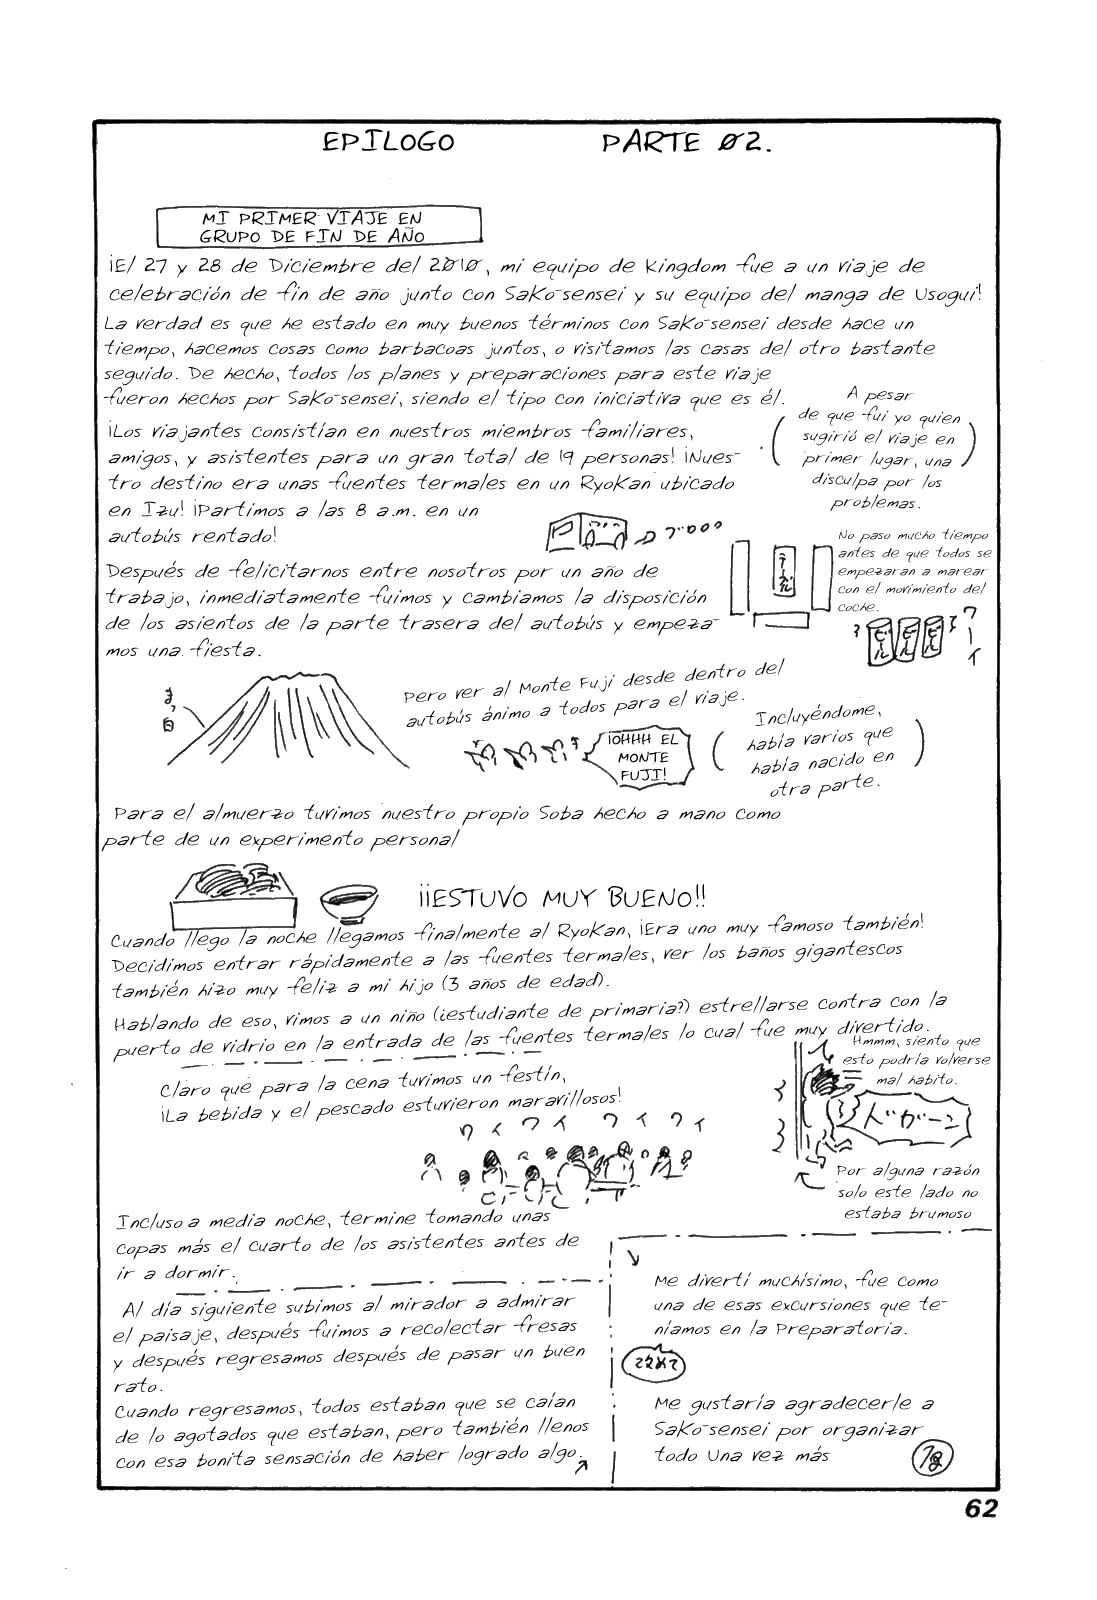 EPILOGO PARTE 02.
MI PRIMER VIAJE EN
GRUPO DE FIN DE AÑO
¡El 27 y 28 de Diciembre del 2010, mi equipo de Kingdom fue a un viaje de
celebración de fin de año junto con Sako-sensei y su equipo del manga de Usogui!
La verdad es que he estado en muy buenos términos con Sako-sensei desde hace un
tiempo, hacemos cosas como barbacoas juntos, o visitamos las casas del otro bastante
seguido. De hecho, todos los planes y preparaciones para este viaje
fueron hechos por Sako-sensei, siendo el tipo con iniciativa que es él.
(A pesar
de que fui yo quien
sugirió el viaje en
primer lugar, una
disculpa por los
problemas.)
¡Los viajantes consistían en nuestros miembros familiares,
amigos, y asistentes para un gran total de 19 personas! ¡Nues-
tro destino era unas fuentes termales en un Ryokan ubicado
en Izu! ¡Partimos a las 8 a.m. en un
autobús rentado!
Después de felicitarnos entre nosotros por un año de
trabajo, inmediatamente fuimos y cambiamos la disposición
de los asientos de la parte trasera del autobús y empeza-
mos una fiesta.
No paso mucho tiempo
antes de que todos se
empezaran a marear
con el movimiento del
coche.
ビール ビール ビール
Pero ver al Monte Fuji desde dentro del
autobús ánimo a todos para el viaje.
¡OHHH EL
MONTE
FUJI!
(Incluyéndome,
había varios que
había nacido en
otra parte.)
Para el almuerzo tuvimos nuestro propio Soba hecho a mano como
parte de un experimento personal
¡¡ESTUVO MUY BUENO!!
Cuando llego la noche llegamos finalmente al Ryokan, ¡Era uno muy famoso también!
Decidimos entrar rápidamente a las fuentes termales, ver los baños gigantescos
también hizo muy feliz a mi hijo (3 años de edad).
Hablando de eso, vimos a un niño (¿estudiante de primaria?) estrellarse contra con la
puerto de vidrio en la entrada de las fuentes termales lo cual fue muy divertido.
Hmmm, siento que
esto podría volverse
mal habito.
ドガーン
Por alguna razón
solo este lado no
estaba brumoso
Claro que para la cena tuvimos un festín,
¡La bebida y el pescado estuvieron maravillosos!
ワイ ワイ ワイ ワイ
Incluso a media noche, termine tomando unas
copas más el cuarto de los asistentes antes de
ir a dormir.
Al día siguiente subimos al mirador a admirar
el paisaje, después fuimos a recolectar fresas
y después regresamos después de pasar un buen
rato.
Cuando regresamos, todos estaban que se caían
de lo agotados que estaban, pero también llenos
con esa bonita sensación de haber logrado algo.
Me divertí muchísimo, fue como
una de esas excursiones que te-
níamos en la Preparatoria.
Me gustaría agradecerle a
Sako-sensei por organizar
todo Una vez más
62